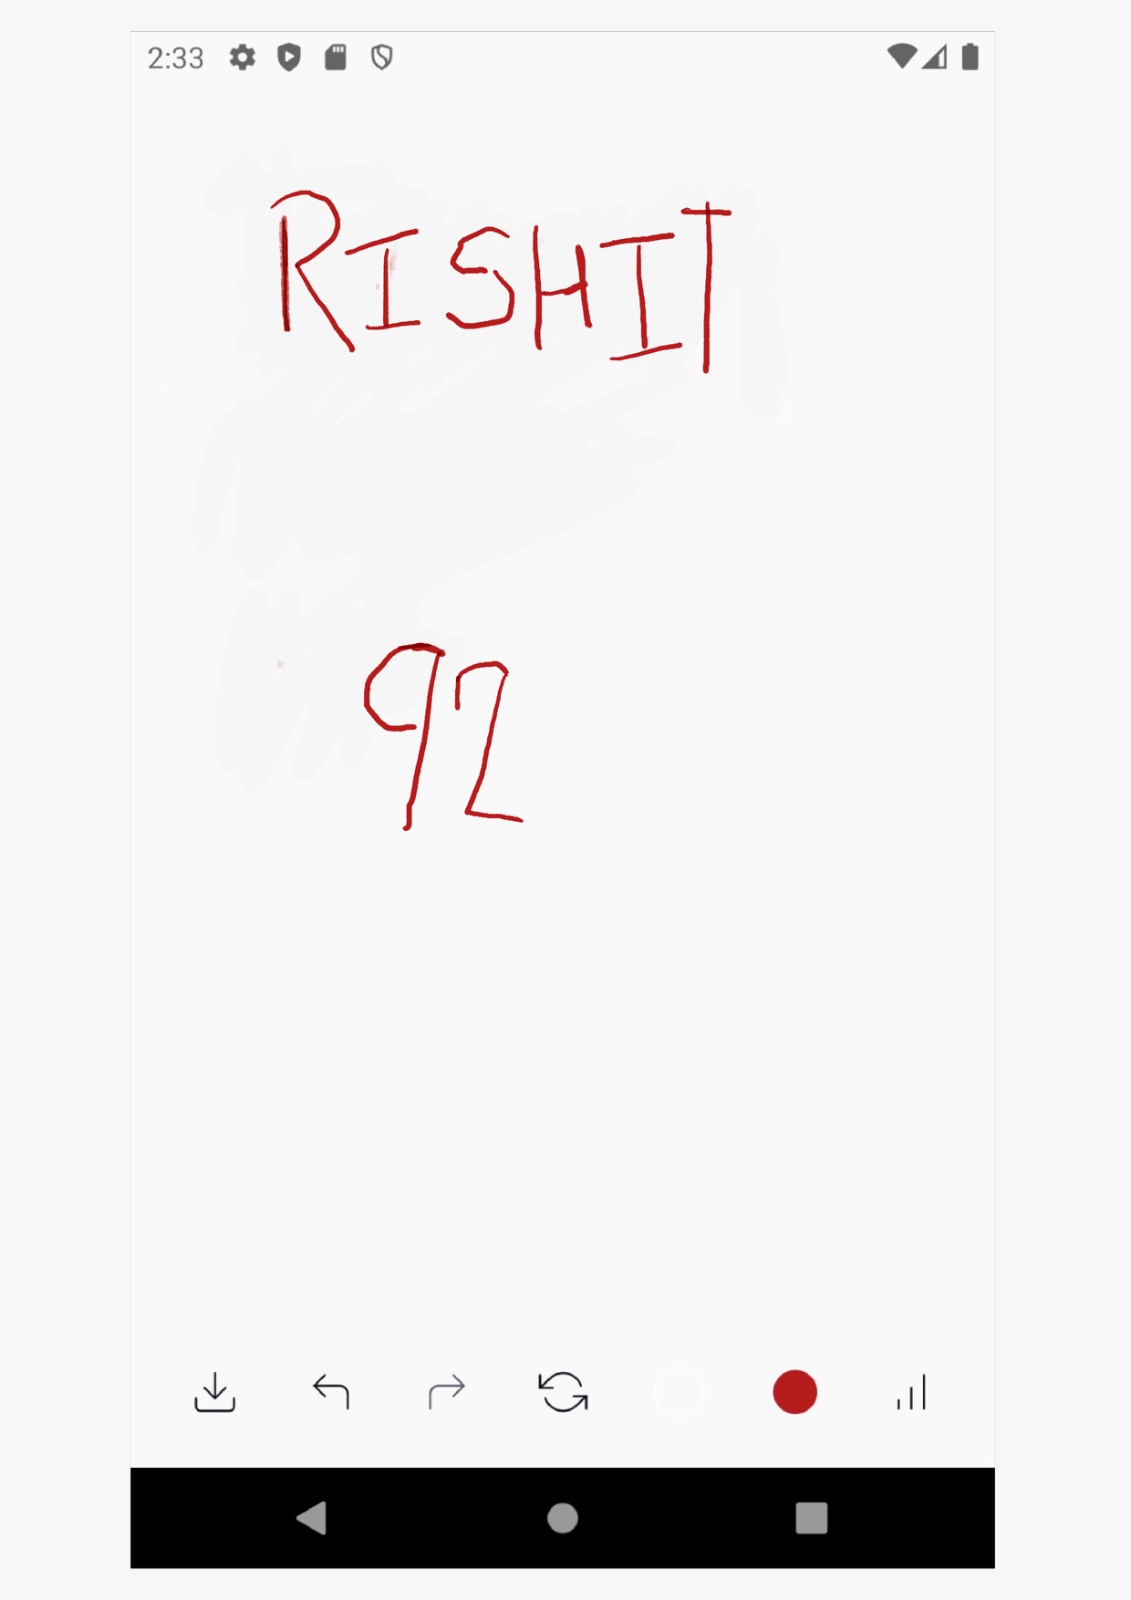 2:33
RISHIT
92